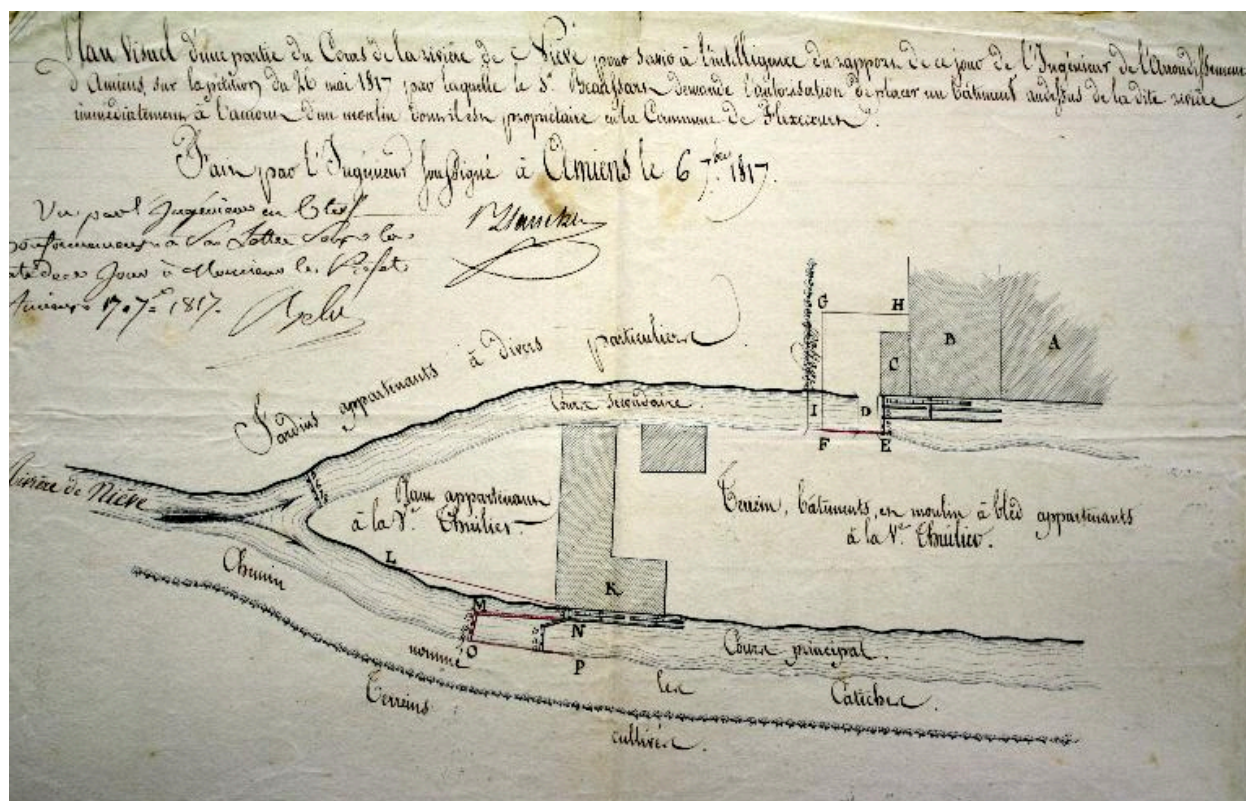 Plan Visuel d'une partie du Cours de la rivière de Nièvre pour servir à l'intelligence du rapport de ce jour de l'Ingénieur de l'Arrondissement
d'Amiens, sur la pétition du 26 mai 1817 par laquelle le Sr. demande l'autorisation de placer un bâtiment au dessus de la dite rivière
immédiatement à l'amont d'un moulin dont il est propriétaire en la Commune de Flixecourt.
Fait par l'Ingénieur soussigné à Amiens le 6 7bre 1817.
Vu par l'Ingénieur en Chef
conformément à sa Lettre sous la
date de ce Jour à Monsieur le Préfet
Amiens 17 7bre 1817.
G
H
B
A
C
Jardins appartenants à divers particuliers
Cours secondaire.
I
D
F
E
Rivière de Nièvre
Place appartenant
à la Ve.
Terrein, bâtiments, et moulin à bled appartenants
à la Ve.
L
K
Chemin
M
N
O
P
nommé
les
Catiches
Cours principal.
Terreins
cultivés.